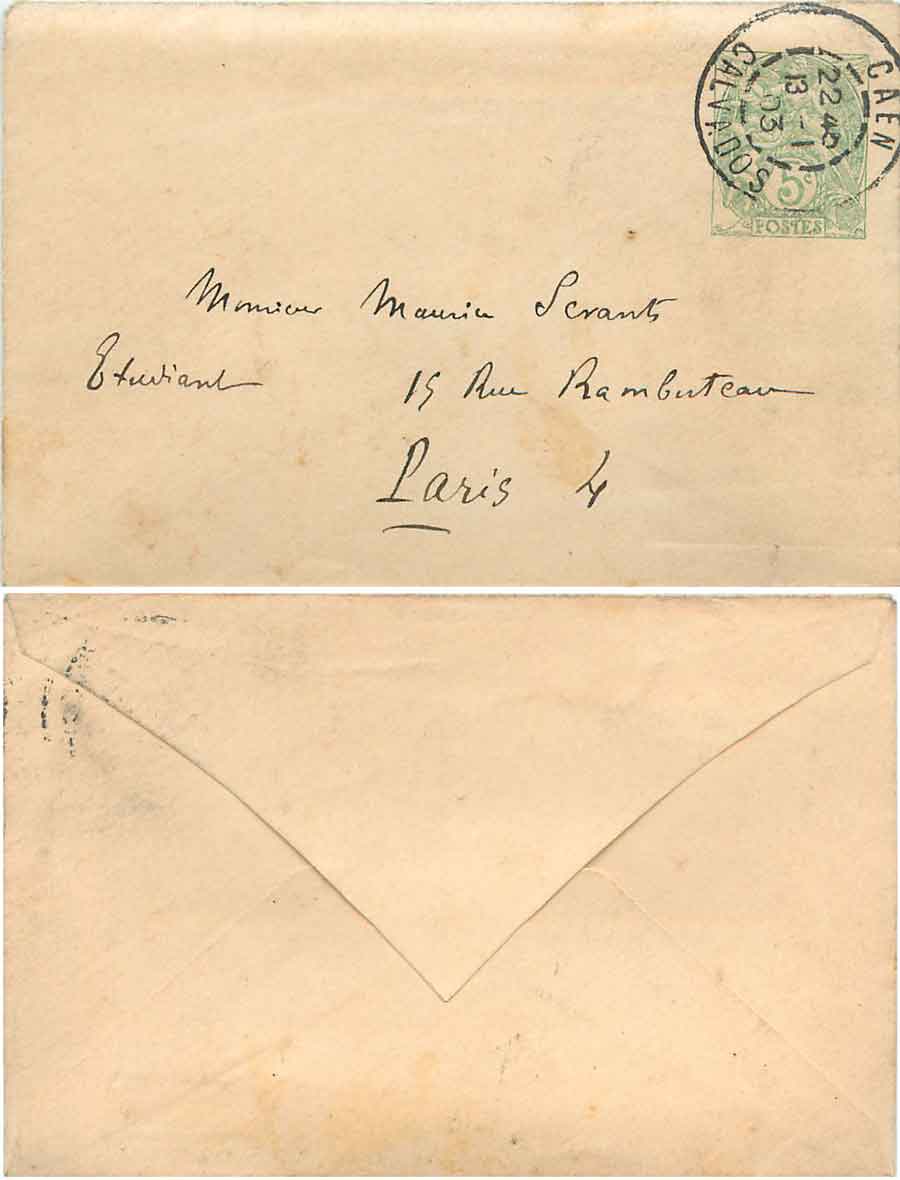 CAEN
22 40
13 -1
03
CALVADOS
5c
POSTES
Monsieur Maurice Servants
Etudiant 15 Rue Rambuteau
Paris 4